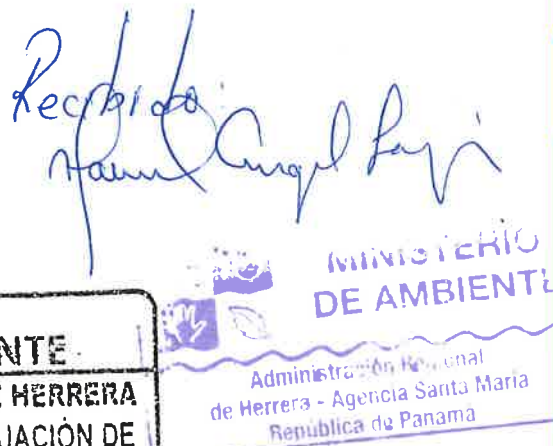 Recibido:
Angel
MINISTERIO
DE AMBIENTE
Administración Regional
de Herrera - Agencia Santa María
República de Panamá
NTE
E HERRERA
UACIÓN DE